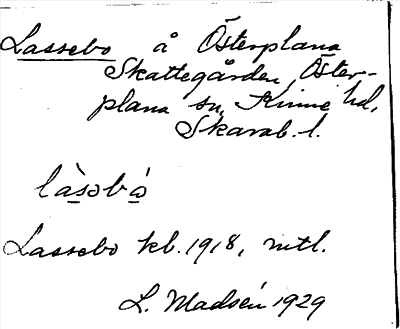 Lassebo å Österplana
Skattegården, Öster-
plana sn, Kinne hd,
Skarab. l.
làsəbə̀
Lassebo kb. 1918, mtl.
L. Madsén 1929